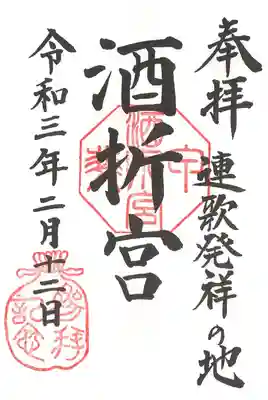 奉拝
連歌発祥の地
酒折宮
令和三年二月十二日
酒折宮